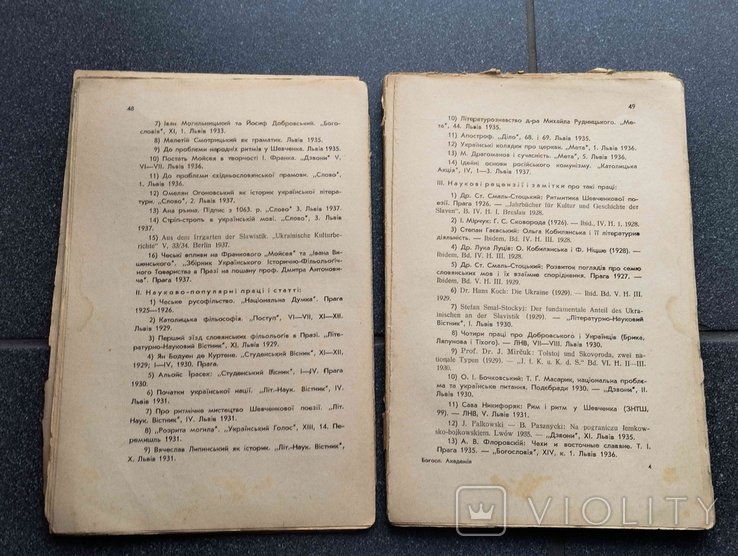 48
7) Іван Могильницкий та Йосиф Добровський. „Бого-
словія", XI, 1. Львів 1933.
8) Мелетій Смотрицький як граматик. Львів 1935.
9) До проблеми народніх ритмів у Шевченка. Львів 1935.
10) Постать Мойсея в творчості І. Франка. „Дзвони" V,
VI—VII. Львів 1936.
11) До проблєми східньослов'янської прамови. „Слово",
1. Львів 1936.
12) Омелян Огоновський як історик української літера-
тури. „Слово", 2. Львів 1936.
13) Ана рънна. Підпис з 1063. р. „Слово" 3. Львів 1937.
14) Стріп-строть в українській мові. „Слово", 3. Львів
1937.
15) Aus dem Irrgarten der Slawistik. "Ukrainische Kulturbe-
richte" V, 33/34. Berlin 1937.
16) Чеські впливи на Франкового „Мойсея" та „Івана Ви-
шенського". „Збірник Українського Історично-Фільольогіч-
ного Товариства в Празі на пошану проф. Дмитра Антонови-
ча". Прага 1937.
II. Науково-популярні праці і статті:
1) Чеське русофільство. „Національна Думка". Прага
1925—1926.
2) Католицька фільософія. „Поступ", VI—VII, XI—XII.
Львів 1929.
3) Перший зїзд словянських фільольогів в Празі. „Літе-
ратурно-Науковий Вістник", XI. Львів 1929.
4) Ян Бодуен де Куртене. „Студенський Вісник", XI—XII,
1929; I—IV, 1930. Прага.
5) Альойс Їрасек: „Студенський Вісник", I—IV. Прага
1930.
6) Початки української нації. „Літ.-Наук. Вістник", IV.
Львів 1931.
7) Про ритмічне мистецтво Шевченкової поезії. „Літ.
Наук. Вістник", IV. Львів 1931.
8) „Розрита могила". „Український Голос", XIII, 14. Пе-
ремишль 1931.
9) Вячеслав Липинський як історик. „Літ.-Наук. Вістник",
X. Львів 1931.
49
10) Літературознавство д-ра Михайла Рудницького. „Ме-
та", 44. Львів 1935.
11) Апостроф. „Діло", 68. і 69. Львів 1935.
12) Українські колядки про церкви. „Мета", 1. Львів 1936.
13) М. Драгоманов і сучасність. „Мета", 5. Львів 1936.
14) Ідейні основи російського комунізму. „Католицька
Акція", IV, 1—3. Львів 1937.
III. Наукові рецензії і замітки про такі праці:
1) Др. Ст. Смаль-Стоцький: Ритмитика Шевченкової по-
езії. Прага 1926. — „Jahrbücher für Kultur und Geschichte der
Slaven", B. IV. H. I. Breslau 1928.
2) І. Мірчук: Г. С. Сковорода (1926). — Ibid., IV. H. 1. 1928.
3) Степан Гаєвський: Ольга Кобилянська і її літературна
діяльність. — Ibidem. Bd. IV. H. III. 1928.
4) Др. Лука Луців: О. Кобилянська і Ф. Ніцше (1928). —
Ibidem. Bd. IV. H. III. 1928.
5) Др. Ст. Смаль-Стоцький: Розвиток поглядів про семю
словянських мов і їх взаїмне споріднення. Прага 1927. —
Ibidem. Bd. IV. H. III. 1928.
6) Dr. Hans Koch: Die Ukraine (1929). — Ibid. Bd. V. H. III.
1929.
7) Stefan Smal-Stockyj: Der fundamentale Anteil des Ukra-
inischen an der Slavistik (1929). — „Літературно-Науковий
Вістник", I. Львів 1930.
8) Чотири праці про Добровського і Українців (Брика,
Ляпунова і Тіхого). — ЛНВ, VII—VIII. Львів 1930.
9) Prof. Dr. J. Mirčuk: Tolstoj und Skovoroda, zwei na-
tionale Typen (1929). — „J. f. K. u. K. d. S." Bd. VI. H. II—III.
1930.
10) О. І. Бочковський: Т. Ґ. Масарик, національна пробле-
ма та українське питання. Подєбради 1930. — „Дзвони", II.
Львів 1930.
11) Сава Никифоряк: Рим і ритм у Шевченка (ЗНТШ,
99). — ЛНВ, V. Львів 1931.
12) J. Falkowski — B. Pasznycki: Na pograniczu łemkow-
sko-bojkowskiem. Lwów 1935. — „Дзвони", XI. Львів 1935.
13) А. В. Флоровскій: Чехи и восточные славяне. Т. I.
Прага 1935. — „Богословія", XIV, к. 1. Львів 1936.
Богосл. Академія
4
VIOLITY